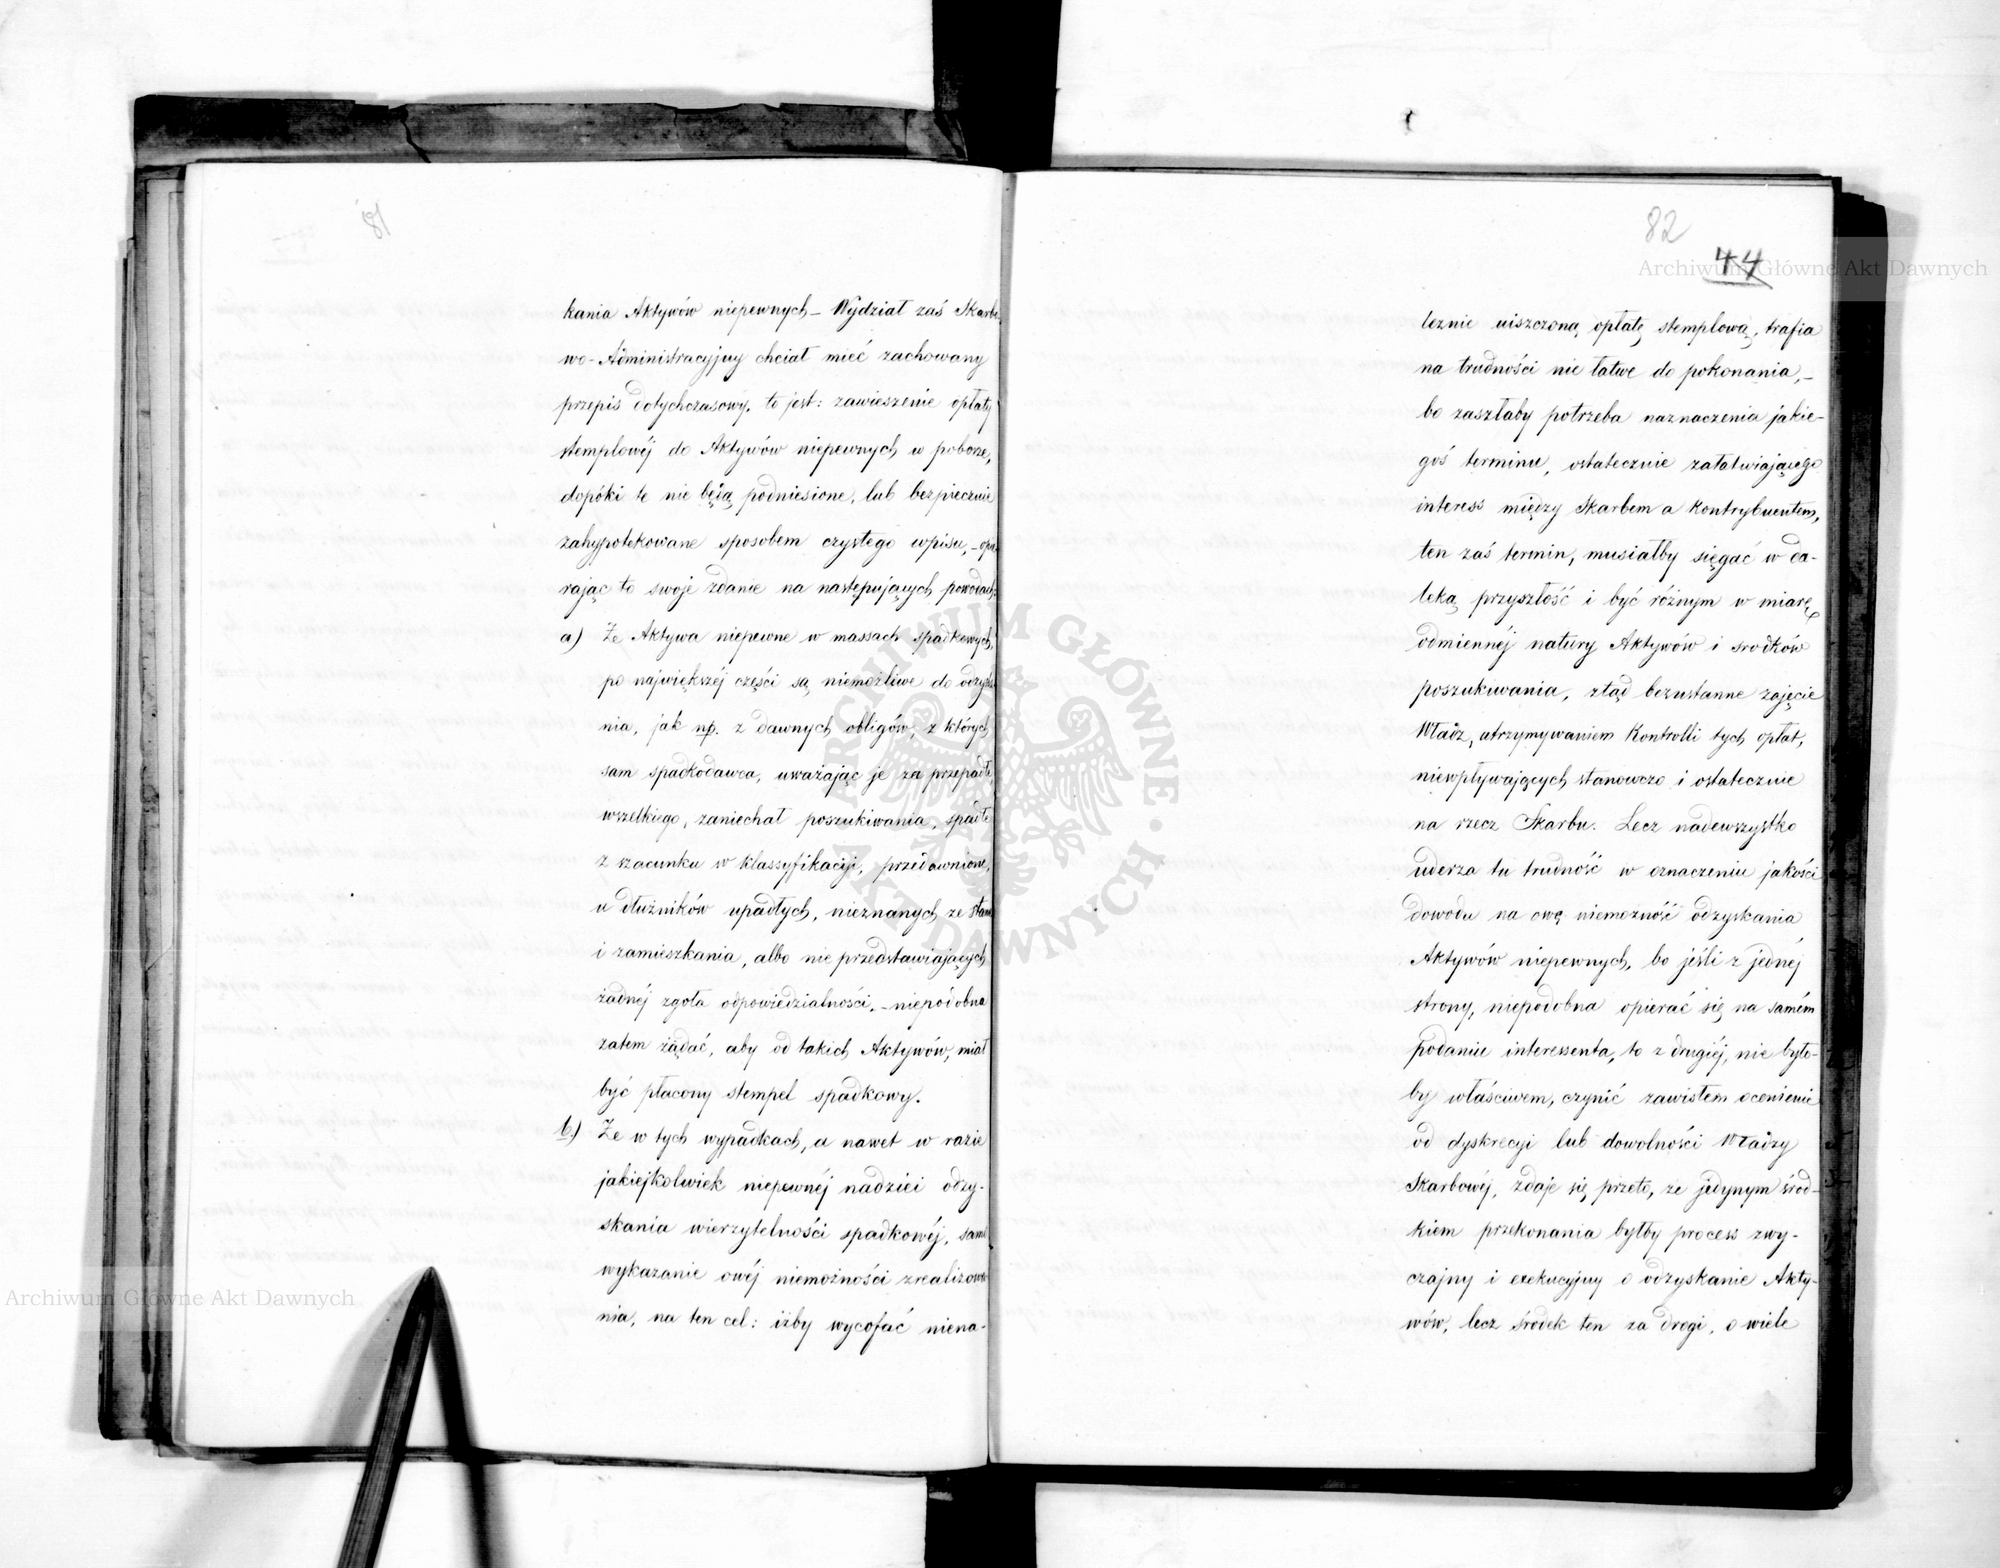 81
kania Aktywów niepewnych – Wydział zaś Skarbo
wo-Administracyjny chciał mieć zachowany
przepis dotychczasowy, to jest: zawieszenie opłaty
stemplowéj do Aktywów niepewnych w poborze,
dopóki te nie będą podniesione, lub bezpiecznie
zahypotekowane sposobem czystego wpisu, – opie
rając to swoje zdanie na następujących powodach:
a) Że Aktywa niepewne w massach spadkowych,
po największéj części są niemożliwe do odzyska
nia, jak np. z dawnych obligów, z których
sam spadkodawca, uważając je za przepadłe
wszelkiego, zaniechał poszukiwania, spadłe
z szacunku w klassyfikacyi, przedawnione,
u dłużników upadłych, nieznanych ze stanu
i zamieszkania, albo nie przedstawiających
żadnéj zgoła odpowiedzialności, – niepodobna
zatem żądać, aby od takich Aktywów, miał
być płacony stempel spadkowy.
b.) Że w tych wypadkach, a nawet w razie
jakiejkolwiek niepewnéj nadziei odzy-
skania wierzytelności spadkowéj, samo
wykazanie owéj niemożności zrealizowa
nia, na ten cel: iżby wycofać niena-
82
44
leżnie uiszczoną opłatę stemplową, trafia
na trudności nie łatwe do pokonania, –
bo zaszłaby potrzeba naznaczenia jakie-
goś terminu, ostatecznie załatwiającego
interess między Skarbem a Kontrybuentem,
ten zaś termin, musiałby sięgać w da-
leką przyszłość i być różnym w miarę
odmiennéj natury Aktywów i srodków
poszukiwania, ztąd bezustanne zajęcie
Władz, utrzymywaniem Kontrolli tych opłat,
niewpływających stanowczo i ostatecznie
na rzecz Skarbu. Lecz nadewszystko
uderza tu trudność w oznaczeniu jakości
dowodu na owę niemożność odzyskania
Aktywów niepewnych, bo jeśli z jednéj
strony, niepodobna opierać się na samém
podaniu interessenta, to z drugiéj, nie było-
by właściwem, czynić zawisłem ocenienie
od dyskrecyi lub dowolności Władzy
Skarbowéj, zdaje się przeto, że jedynym środ-
kiem przekonania byłby process zwy-
czajny i exekucyjny o odzyskanie Akty-
wów, lecz środek ten za drogi, o wiele
Archiwum Główne Akt Dawnych
Archiwum Główne Akt Dawnych
ARCHIWUM GŁÓWNE AKT DAWNYCH